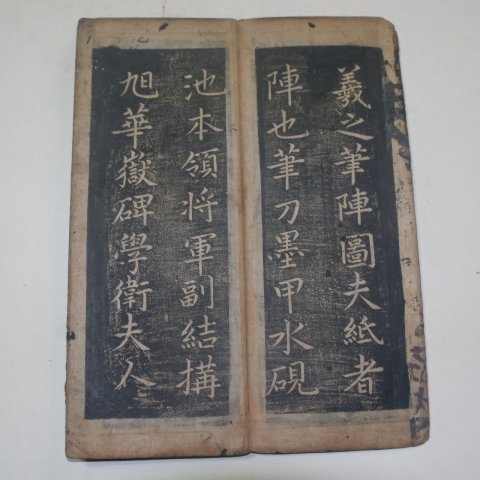 羲之筆陣圖夫紙者
陣也筆刀墨甲水硯
池本領将軍副結構
旭華嶽碑學衛夫人